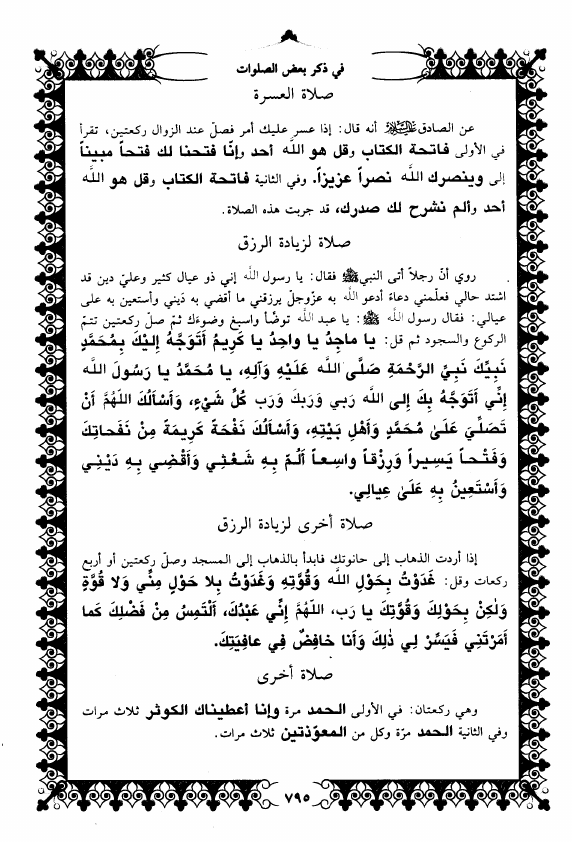 في ذكر بعض الصلوات
صلاة العسرة
عن الصادق عليه السلام أنه قال: إذا عسر عليك أمر فصلّ عند الزوال ركعتين، تقرأ
في الأولى فاتحة الكتاب وقل هو الله أحد وإنّا فتحنا لك فتحاً مبيناً
إلى وينصرك الله نصراً عزيزاً. وفي الثانية فاتحة الكتاب وقل هو الله
أحد وألم نشرح لك صدرك، قد جربت هذه الصلاة.
صلاة لزيادة الرزق
روي أنّ رجلاً أتى النبي ﷺ فقال: يا رسول الله إني ذو عيال كثير وعليّ دين قد
اشتد حالي فعلّمني دعاءً أدعو الله به عزّوجلّ يرزقني ما أقضي به دَيني وأستعين به على
عيالي: فقال رسول الله ﷺ: يا عبد الله توضّأ واسبغ وضوءك ثمّ صلّ ركعتين تتمّ
الركوع والسجود ثم قل: يا ماجِدُ يا واحِدُ يا كَرِيمُ أَتَوَجَّهُ إِلَيْكَ بِمُحَمَّدٍ
نَبِيِّكَ نَبِيِّ الرَّحْمَةِ صَلَّى الله عَلَيْهِ وَآلِهِ، يا مُحَمَّدُ يا رَسُولَ الله
إِنِّي أَتَوَجَّهُ بِكَ إِلى الله رَبِي وَرَبِكَ وَرَب كُلِّ شَيْءٍ، وَأَسْأَلُكَ اللهُمَّ أَنْ
تَصَلِّيَ عَلىٰ مُحَمَّدٍ وَأَهْلِ بَيْتِهِ، وَأَسْأَلُكَ نَفْحَةً كَرِيمَةً مِنْ نَفَحاتِكَ
وَفَتْحاً يَسِيراً وَرِزْقاً واسِعاً أَلُمّ بِهِ شَعْثِي وَأَقْضِي بِهِ دَيْنِي
وَأَسْتَعِينُ بِهِ عَلىٰ عِيالِي.
صلاة أخرى لزيادة الرزق
إذا أردت الذهاب إلى حانوتك فابدأ بالذهاب إلى المسجد وصلّ ركعتين أو أربع
ركعات وقل: غَدَوْتُ بِحَوْلِ الله وَقُوَّتِهِ وَغَدَوْتُ بِلا حَوْلٍ مِنِّي وَلا قُوَّةٍ
وَلٰكِنْ بِحَوْلِكَ وَقُوَّتِكَ يا رَب، اللهُمَّ إِنِّي عَبْدُكَ، أَلْتَمِسُ مِنْ فَضْلِكَ كَما
أَمَرْتَنِي فَيَسِّرْ لِي ذٰلِكَ وَأَنا خافِضٌ فِي عافِيَتِكَ.
صلاة أخرى
وهي ركعتان: في الأولى الحمد مرة وإنا أعطيناك الكوثر ثلاث مرات
وفي الثانية الحمد مرّة وكل من المعوّذتين ثلاث مرات.
٧٩٥